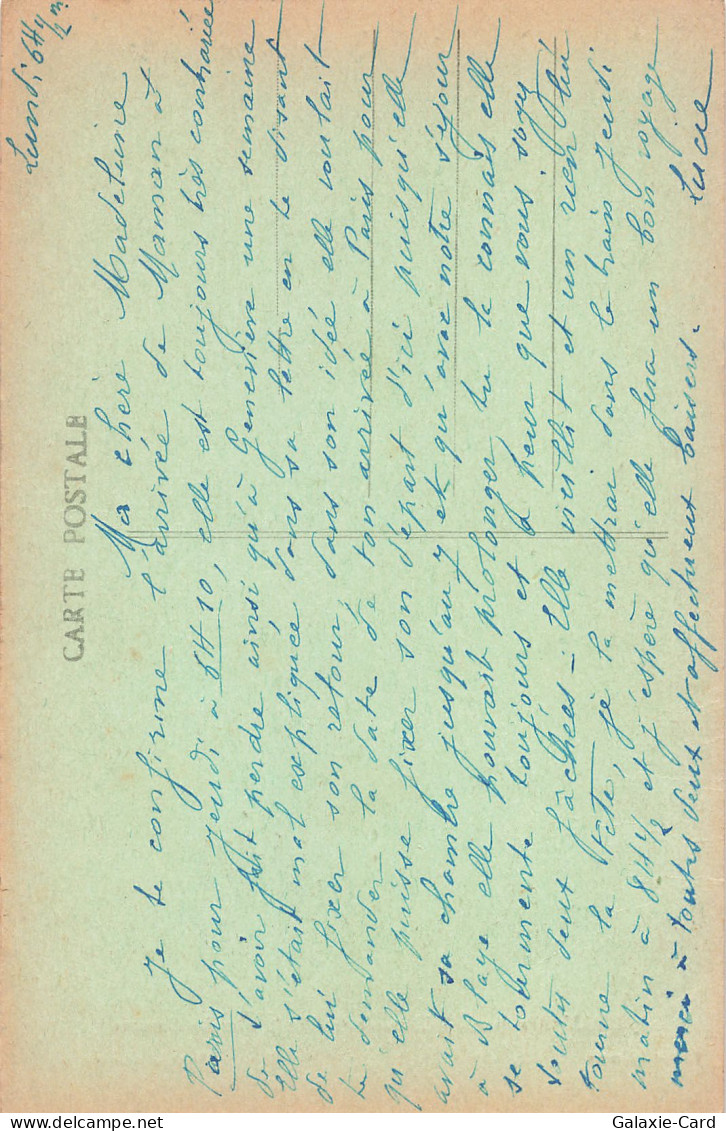 Lundi 6H 1/2 m
CARTE POSTALE
Ma chère Madeleine
Je te confirme l'arrivée de Maman à
Paris pour Jeudi à 8H10, elle est toujours très contrariée
de t'avoir fait perdre ainsi qu'à Geneviève une semaine
Elle s'était mal expliquée dans sa lettre en te disant
de lui fixer son retour, dans son idée elle voulait
te demander la date de ton arrivée à Paris pour
qu'elle puisse fixer son départ d'ici puisqu'elle
avait sa chambre jusqu'au 7 et qu'avec notre séjour
à Blaye elle pouvait prolonger tu la connais elle
se tourmente toujours et a peur que vous soyez
toutes deux fâchées - Elle vieillit et un rien lui
tourne la tête, je la mettrai dans le train Jeudi
matin à 8H 1/2 et j'espère qu'elle fera un bon voyage
merci à toutes deux et affectueux baisers.
Lucie
Galaxie-Card